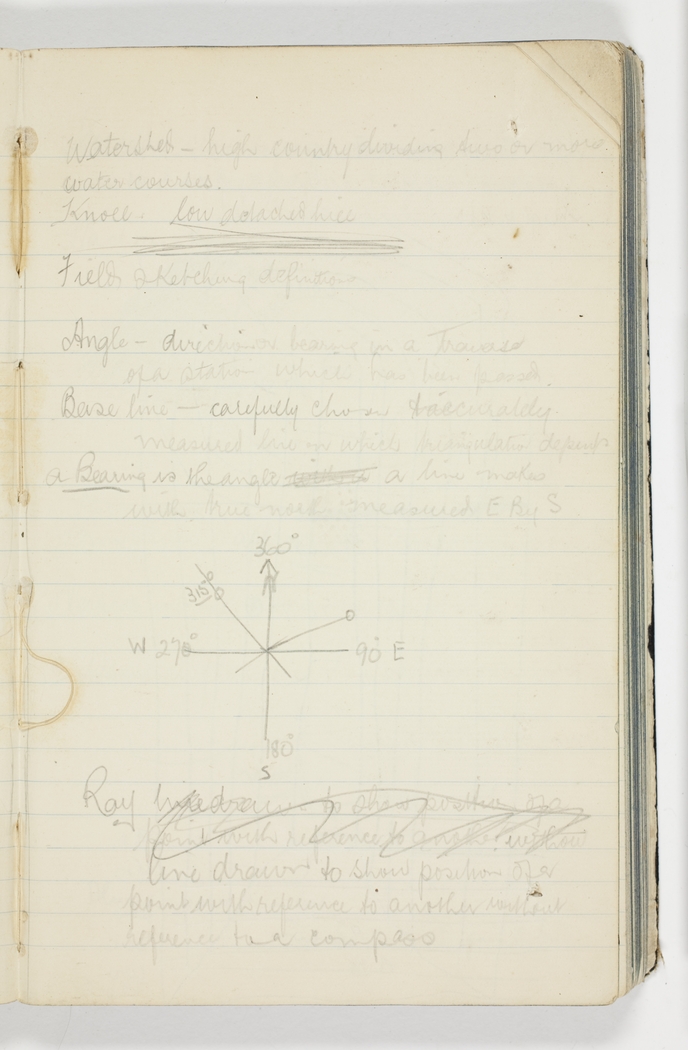 Watershed – high country dividing two or more
water courses.
Knoll. low detached hill
Field sketching definitions
Angle – direction or bearing in a Traverse
of a station which has been passed.
Base line – carefully chosen & accurately
measured line on which triangulation depends
a Bearing is the angle a line makes
with true north measured E By S
360°
315°
W 270° 90° E
180°
S
Ray line drawn to show position of a
point with reference to another without
line drawn to show position of a
point with reference to another without
reference to a compass